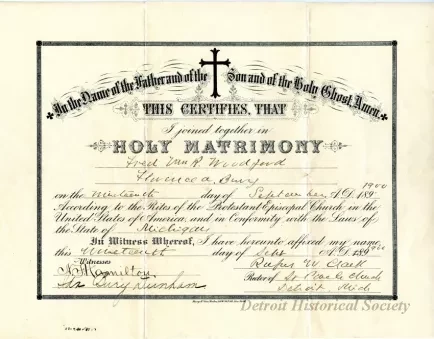 In the Name of the Father and of the Son and of the Holy Ghost, Amen.
THIS CERTIFIES, THAT
I joined together in
HOLY MATRIMONY
Fred Van R. Woodford
Florence A.
on the nineteenth day of September A.D. 189 1900
According to the Rites of the Protestant Episcopal Church in the
United States of America; and in Conformity with the Laws of
the State of Michigan
In Witness Whereof, I have hereunto affixed my name
this nineteenth day of Sept A.D. 189
Witnesses Rufus W. Clark
Hamilton Rector of St Paul's Church
Dunham Detroit, Mich
Detroit Historical Society